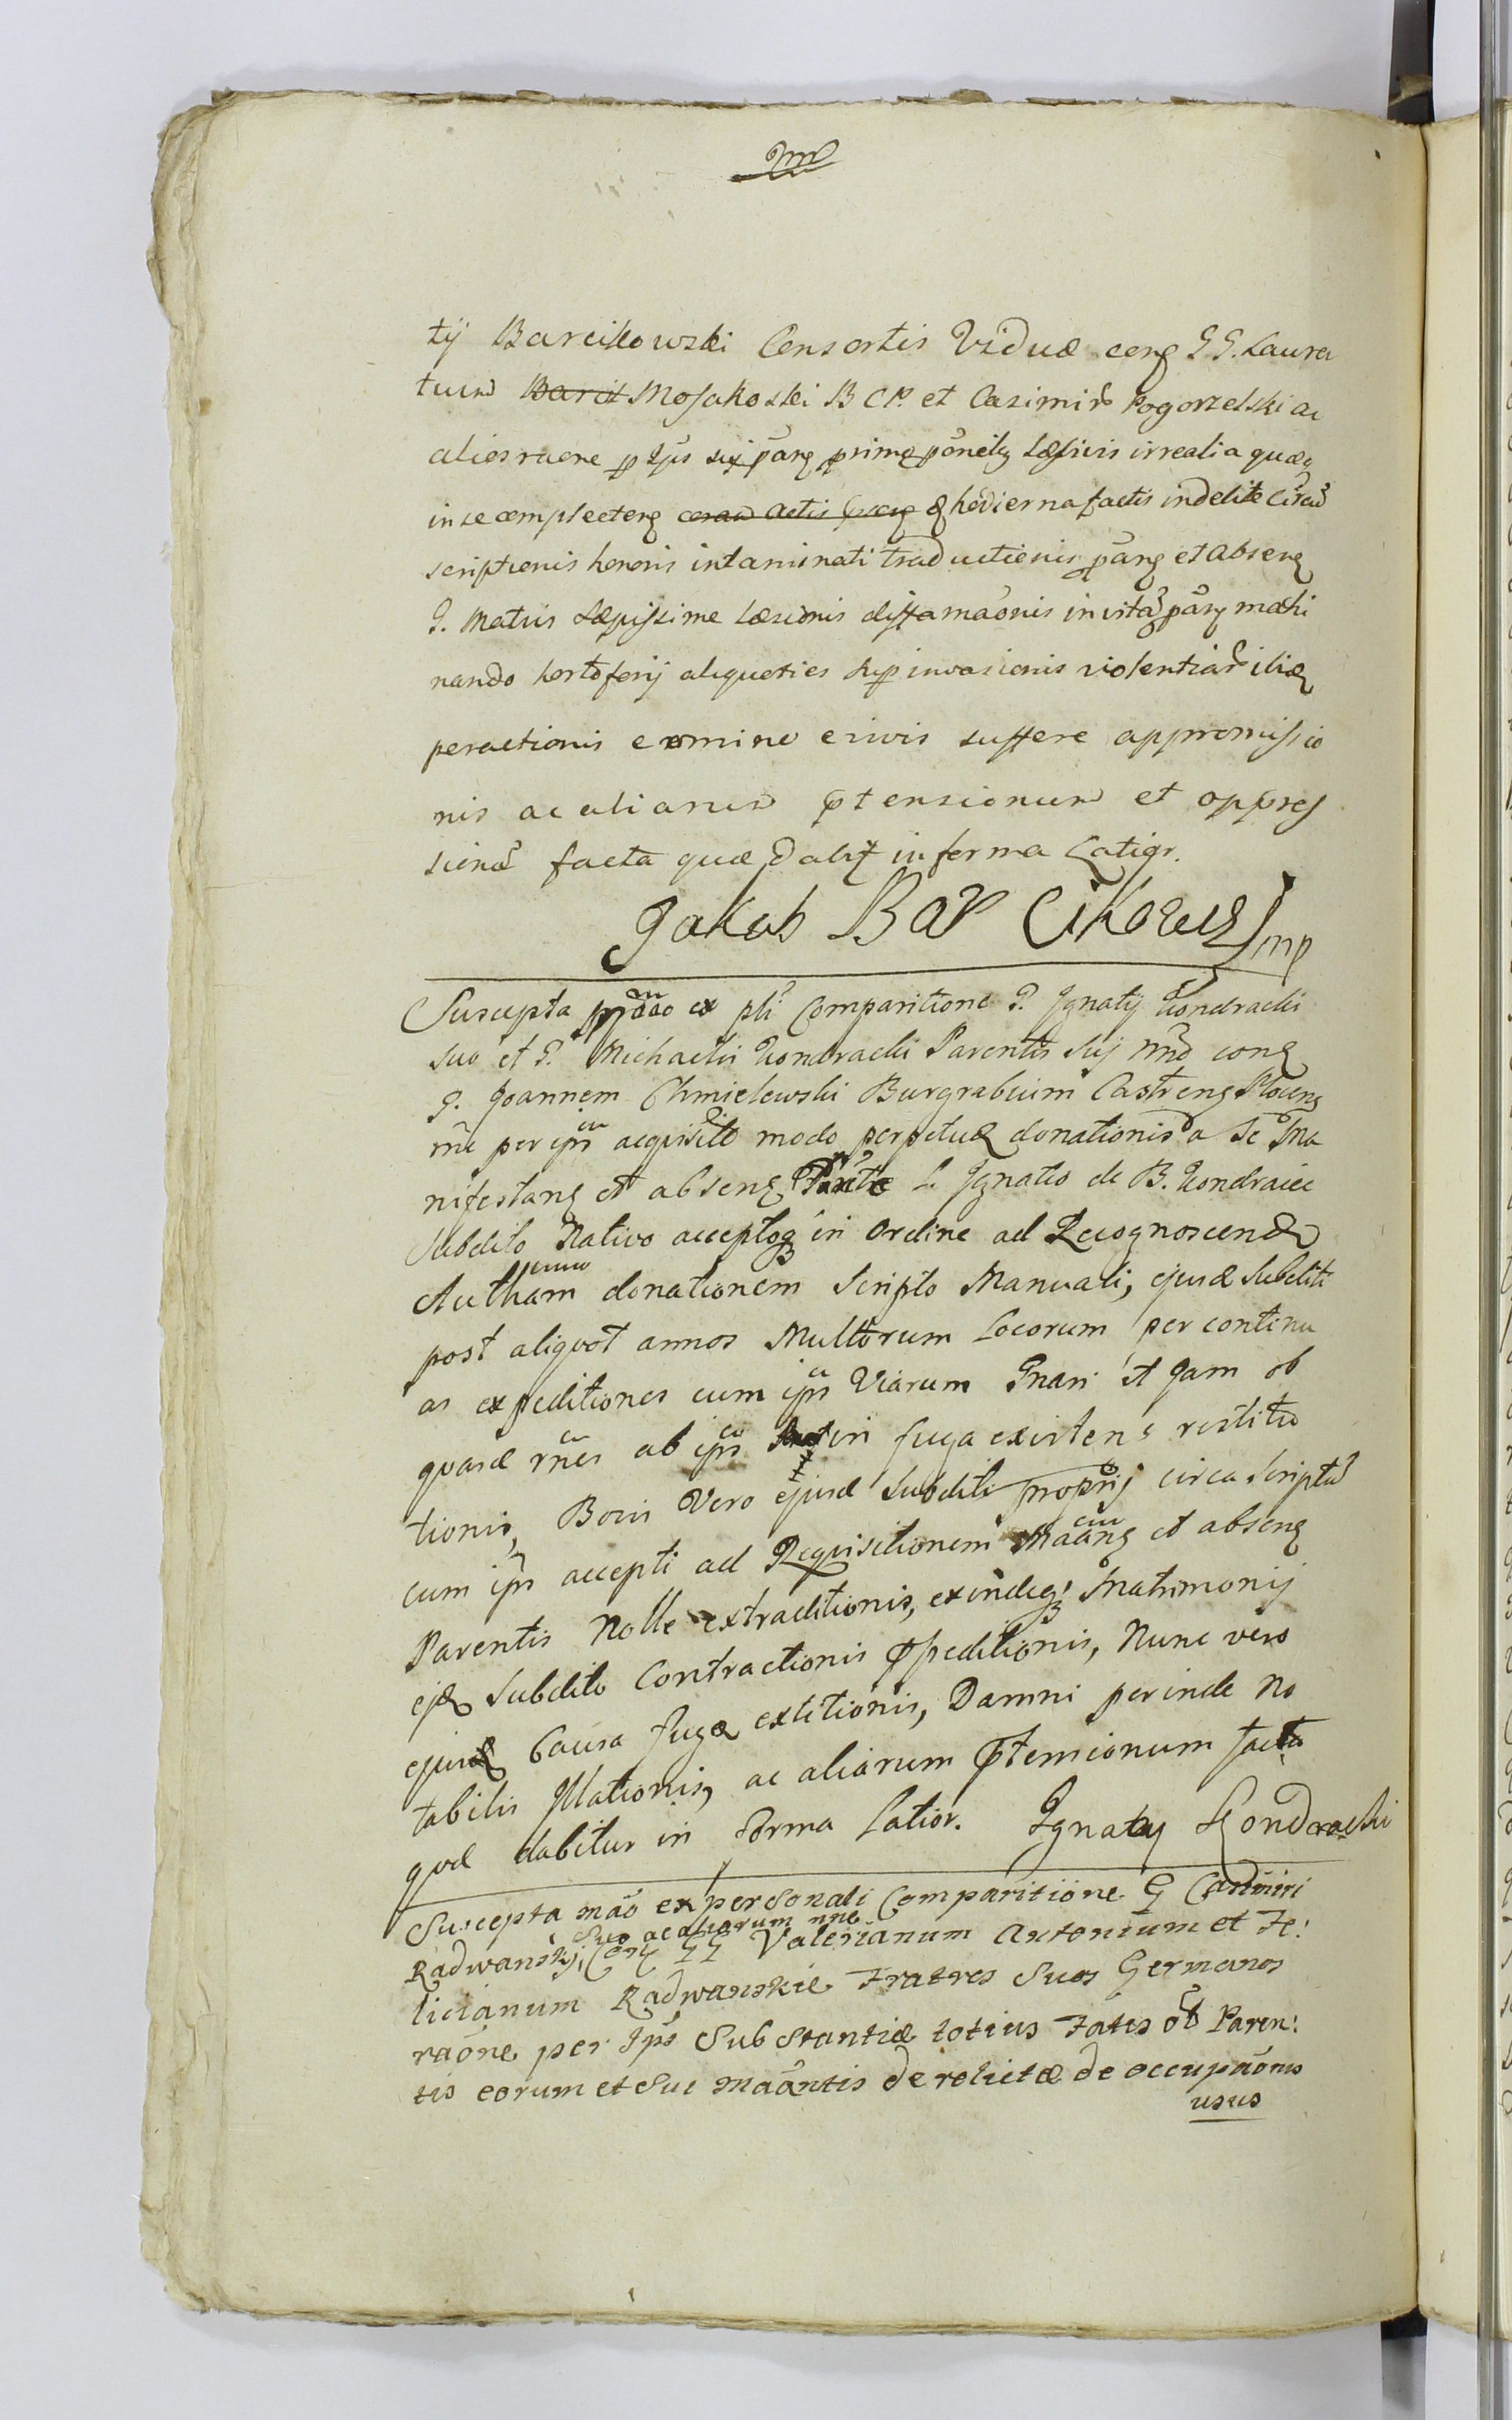 tÿ Barcikowski Consortis Viduæ cong G G. Laura
tium Barcik Mosakoski B C P. et Casimirũ Pogorzelski ac
alios rãone p Ips sui pãng prime põneit Læsivis irrealia quæq
in se complecteng coram Actis hodierna factis indebite Circũ
scriptionis honoris intaminati traductionis pãng et Abseng
G. Matris Læpissime Læsionis diffamãonis in vitã pãng machi
nando hortoforij aliquoties sup invasionis violentiar̃ ibiq
peractionis e omine suffere appromissio
nis ac aliarum ptensionum et oppres
sionũ facta quæ dabit in forma Latior.
Jakob Bar Cikowski mp
Suscepta ex pli Comparitione G. Ignatij Kondracki
suo et G. Michaelis Kondracki Parentis Suj nnẽ cong
G. Joannem Chmielewski Burgrabium Castreng Ploceng
rñe per ipm acquisito modo perpetuæ donationis a Se Ma
nifestang et abseng Parẽte L. Ignatio de B. Kondraice
Subdito Nativo acceptoq in Ordine ad Recognoscendã
Autham donationem Scripto Manuali, ejusd Subditi
post aliquot annos Multorum Locorum per continu
as expeditiones cum ipm Viarum Gnari et Jam ob
quasd rñes ab ipm in fuga existens restitu
tionis, Bovis Vero ejusd Subditi proprij circa Scriptũ
cum ipm accepti ad Requisitionem Maãng et abseng
Parentis Nolle extraditionis, exindeq Matrimonij
ejd Subdito Contractionis ppeditionis, Nunc vero
ejusd Causa fugæ extitionis, Damni perinde No
tabilis Illationis, ac aliarum ptensionum facta
quæ dabitur in Forma Latior. Ignaty Kondracki
Suscepta mão ex personali Comparitione G Casimiri
Suo ac aliorum nne
Radwanskj, Cong GG Valerianum Antonium et Fe:
licianum Radwanskie Fratres Suos Germanos
rãone per Ips Substantiæ totius Fatis Paren:
tis eorum et Sui Maãntis derelictæ de occupãonis
usus